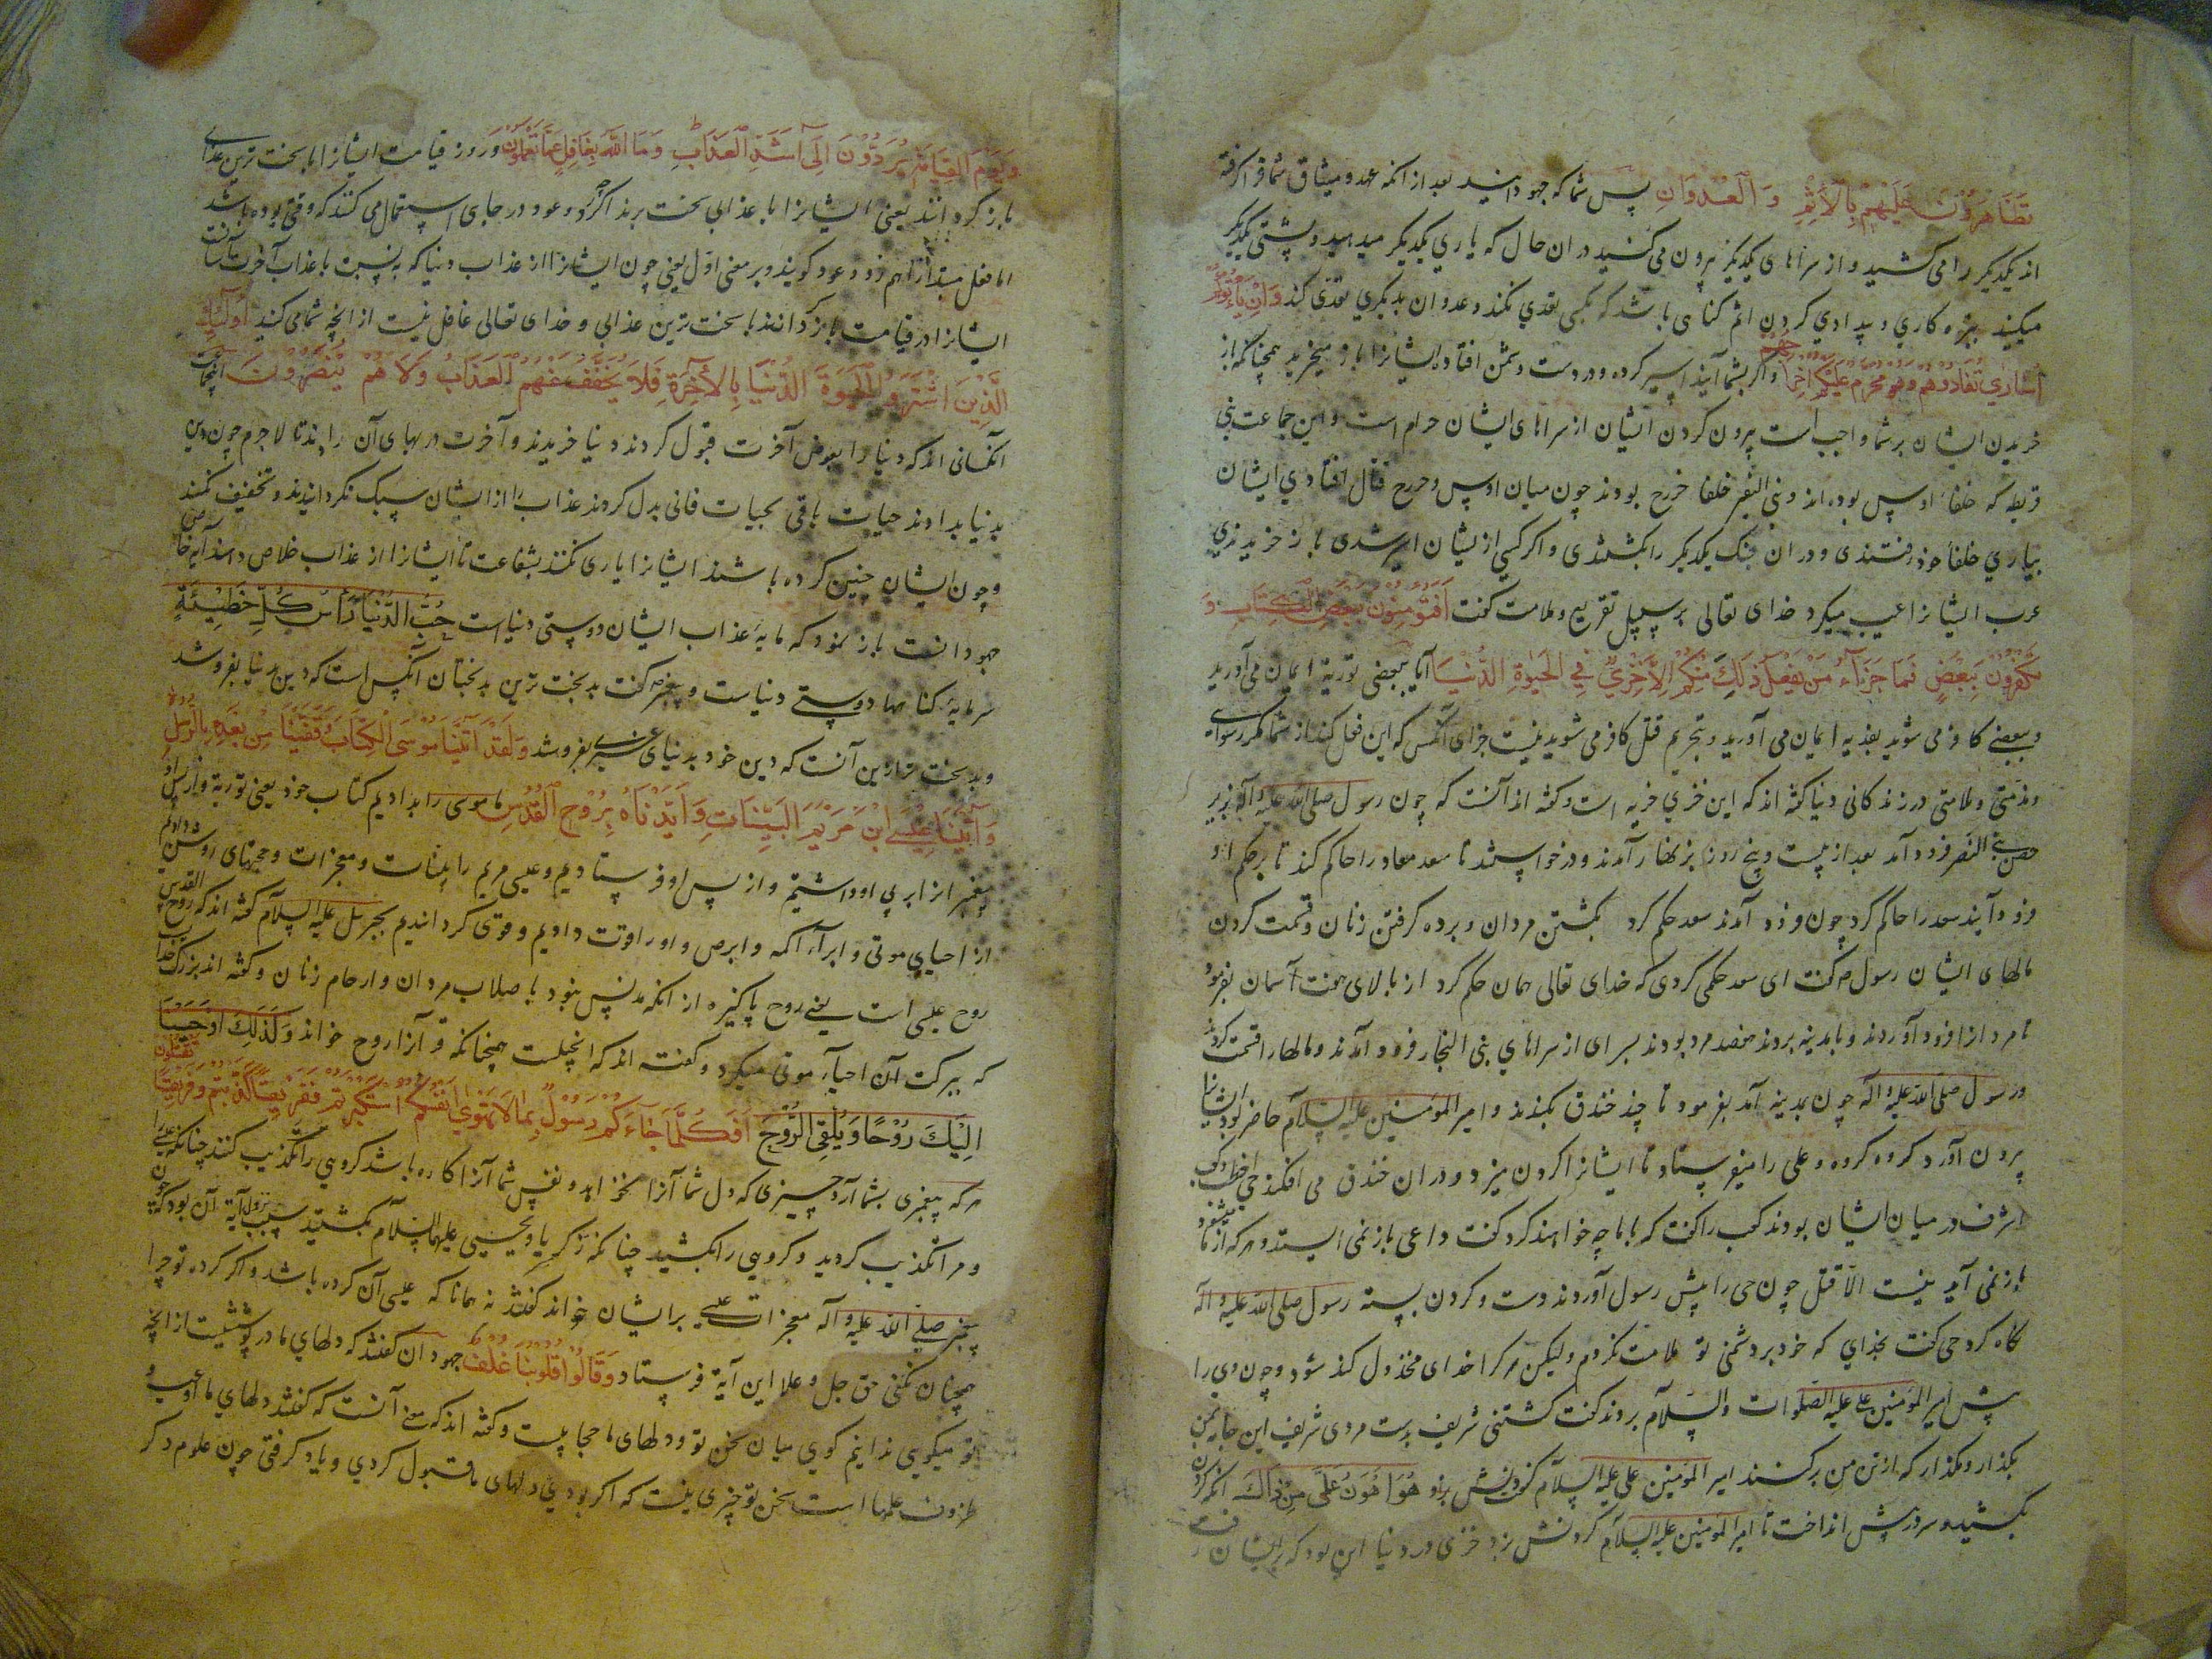 تَظَاهَرُونَ عَلَيْهِمْ بِالْاِثْمِ وَ الْعُدْوَانِ پس شما که جهودانید بعد از انکه عهد و میثاق شما فرا گرفته
اند یکدیگر را می کشید و از سراهای یکدیگر بیرون می کنید در ان حال که یاری یکدیگر میدهید و پشتی یکدیگر
میکنید ببزه کاری و بیدادی کردن اثم کناهی باشد که بکسی تعدی نکند و عدوان بدیگری تعدی کند وَاِنْ يَأْتُوكُمْ
اُسَارٰى تُفَادُوهُمْ وَهُوَ مُحَرَّمٌ عَلَيْكُمْ اِخْرَاجُهُمْ و اگر بشما آیند اسیر کرده و در دست دشمن افتاده ایشانرا باز میخرید همچنانکه باز
خریدن ایشان بر شما واجب است بیرون کردن ایشان از سراهای ایشان حرام است و این جماعت بنی
قریظه که خلفاء اوس بوده اند و بنی النضیر خلفا خزرج بودند چون میان اوس و خزرج قتال افتادی ایشان
بیاری خلفاء خود رفتندی و در ان جنک یکدیگر را بکشتندی و اگر کسی از یشان اسیر شدی باز خریدندی
عرب ایشانرا عیب میکرد خدای تعالی بر سبیل تقریع و ملامت کفت اَفَتُؤْمِنُونَ بِبَعْضِ الْكِتَابِ وَ
تَكْفُرُونَ بِبَعْضٍ فَمَا جَزَاءُ مَنْ يَفْعَلُ ذٰلِكَ مِنْكُمْ اِلَّا خِزْيٌ فِي الْحَيٰوةِ الدُّنْيَا آیا ببعضی توریة ایمان می آورید
و ببعضی کافر می شوید بفدیه ایمان می آورید و بتحریم قتل کافر می شوید نیست جزای آنکس که این فعل کند از شما مگر رسوای
و مذمتی و ملامتی در زندکانی دنیا کفته اند که این خزی جزیه است و کفته اند آنست که چون رسول صلی الله علیه و آله بزیر
حصن بنی النضیر فرود آمد بعد از بیست و پنج روز بزنهار آمدند و درخواستند تا سعد معاد را حاکم کند تا بر حکم او
فرود آیند سعد را حاکم کرد چون فرود آمدند سعد حکم کرد بکشتن مردان و برده کرفتن زنان و قسمت کردن
مالهای ایشان رسول ص کفت ای سعد حکمی کردی که خدای تعالی همان حکم کرد از بالای هفت آسمان بفرمود
تا مردانرا فرود آوردند و بامدینه بردند هفصد مرد بودند بسرای از سراهای بنی النجار فرود آمدند و مالهارا قسمت کردند
و رسول صلی الله علیه و آله چون بمدینه آمد بفرمود تا چند خندق بکندند و امیر المومنین علیه السلام حاضر بود ایشانرا
بیرون آورد کروه کروه و علی را میفرستاد تا ایشانرا کردن میزد و در ان خندق می افکند حی اخطب و کعب
اشرف در میان ایشان بودند کعب را کفت که با ما چه خواهند کرد کفت داعی باز نمی ایستد و هر که از ما
باز نمی آید نیست الا قتل چون حی را پیش رسول آوردند دست و کردن بسته رسول صلی الله علیه و اله
نکاه کرد حی کفت بخدای که خود بر دشمنی تو ملامت نکردم ولیکن هر کرا خدای مخذول کند شود و چون وی را
پیش امیر المومنین علی علیه الصلوات و السلام بردند کفت کشتنی شریف بدست مردی شریف این جامه بمن
بکذار و مکذار که از تن من برکنند امیر المومنین علی علیه السلام کفت هُوَ اَهْوَنُ عَلَيَّ مِنْ ذَاكَ
بکشید و سر در پیش انداخت تا امیر المومنین علیه السلام کردنش بزد خزی در دنیا این بود که بایشان
وَيَوْمَ الْقِيَامَةِ يُرَدُّونَ اِلٰى اَشَدِّ الْعَذَابِ وَمَا اللهُ بِغَافِلٍ عَمَّا تَعْمَلُونَ و روز قیامت ایشانرا با سخت ترین عذاب
باز کردانند یعنی ایشانرا با عذابی سخت برند اگر چه رد و عود در جای استعمال می کنند که وقتی بوده باشد
اما فعل مبتدا را هم رد و عود کویند و بر معنی اول یعنی چون ایشانرا از عذاب دنیا که به نسبت با عذاب آخرت
ایشانرا در قیامت باز کردانند با سخت ترین عذابی و خدای تعالی غافل نیست از انچه شما می کنید اُولٰئِكَ
الَّذِينَ اشْتَرَوُا الْحَيٰوةَ الدُّنْيَا بِالْاٰخِرَةِ فَلَا يُخَفَّفُ عَنْهُمُ الْعَذَابُ وَلَا هُمْ يُنْصَرُونَ
آنکسانی اند که دنیا را بعوض آخرت قبول کردند دنیا خریدند و آخرت در بهای آن لاجرم چون دین
بدنیا بدادند حیات باقی بحیات فانی بدل کردند عذاب را از ایشان سبک نکردانیدند و تخفیف نکنند
و چون ایشان چنین کرده باشند ایشانرا یاری نکنند بشفاعت تا ایشانرا از عذاب خلاص دهند
جهودانست باز نمود که مایه عذاب ایشان دوستی دنیاست حُبُّ الدُّنْيَا رَأْسُ كُلِّ خَطِيئَةٍ
سرمایه کناهها دوستی دنیاست و پیغمبر ص کفت بدبخت ترین بدبختان آنکس است که دین بدنیا بفروشد
و بدبخت تر ازین آنست که دین خود بدنیای غیری بفروشد وَلَقَدْ اٰتَيْنَا مُوسَى الْكِتَابَ وَقَفَّيْنَا مِنْ بَعْدِهِ بِالرُّسُلِ
وَاٰتَيْنَا عِيسَى ابْنَ مَرْيَمَ الْبَيِّنَاتِ وَاَيَّدْنَاهُ بِرُوحِ الْقُدُسِ ما موسی را بدادیم کتاب خود یعنی توریة و از پس او
پیغمبرانرا بر پی او داشتیم و از پس او فرستادیم و عیسی مریم را بینات و معجزات و حجتهای روشن دادیم
از احیای موتی و ابرآء اکمه و ابرص و او را قوت دادیم و قوی کردانیدیم بجبریل علیه السلام کفته اند که روح القدس
روح عیسی است یعنی روح پاکیزه از انکه مدنس نبود باصلاب مردان و ارحام زنان و کفته اند بزرک
که ببرکت آن احیاء موتی میکرد و کفته اند که انجیلست همچنانکه قرآنرا روح خواند وَكَذٰلِكَ اَوْحَيْنَا
اِلَيْكَ رُوحًا وَيُلْقِي الرُّوحَ اَفَكُلَّمَا جَاءَكُمْ رَسُولٌ بِمَا لَا تَهْوٰى اَنْفُسُكُمُ اسْتَكْبَرْتُمْ فَفَرِيقًا كَذَّبْتُمْ وَفَرِيقًا تَقْتُلُونَ
هر که پیغمبری بشما آرد چیزی که دل شما آنرا نخواهد و نفس شما آنرا کاره باشد کروهی را تکذیب کنند چنانکه عیسی را
و مرا تکذیب کردید و کروهی را بکشید چنانکه زکریا و یحیی علیهما السلام بکشتید سبب نزول آیة آن بود که چون
پیغمبر صلی الله علیه و آله معجزات عیسی بر ایشان خواند کفتند نه همانا که عیسی آن کرده باشد و اگر کرده تو چرا
همچنان نکنی حق جل و علا این آیة فرستاد وَقَالُوا قُلُوبُنَا غُلْفٌ جهودان کفتند که دلهای ما در پوششیست از انچه
تو میکویی ندانیم کوی میان سخن تو و دلهای ما حجابیست و کفته اند که معنی آنست که کفتند دلهای ما اوعیه و
ظروف علمها است سخن تو چیزی نیست که اگر بودی دلهای ما قبول کردی و یاد کرفتی چون علوم دکر